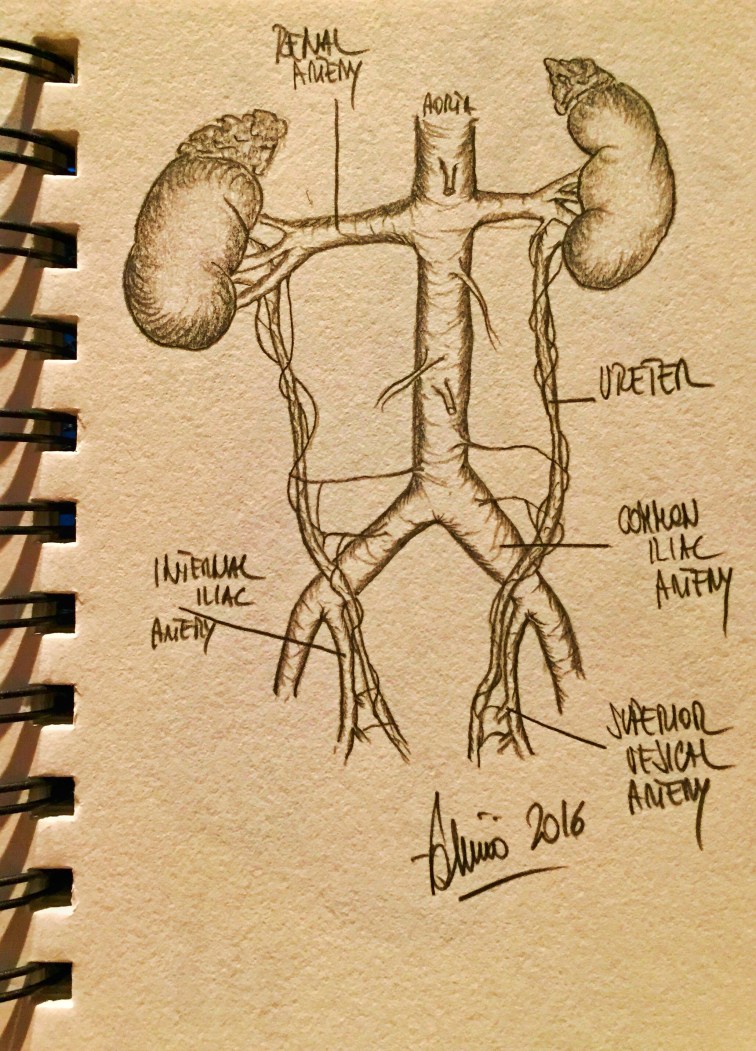 RENAL
ARTERY
AORTA
URETER
COMMON
ILIAC
ARTERY
INTERNAL
ILIAC
ARTERY
SUPERIOR
VESICAL
ARTERY
2016